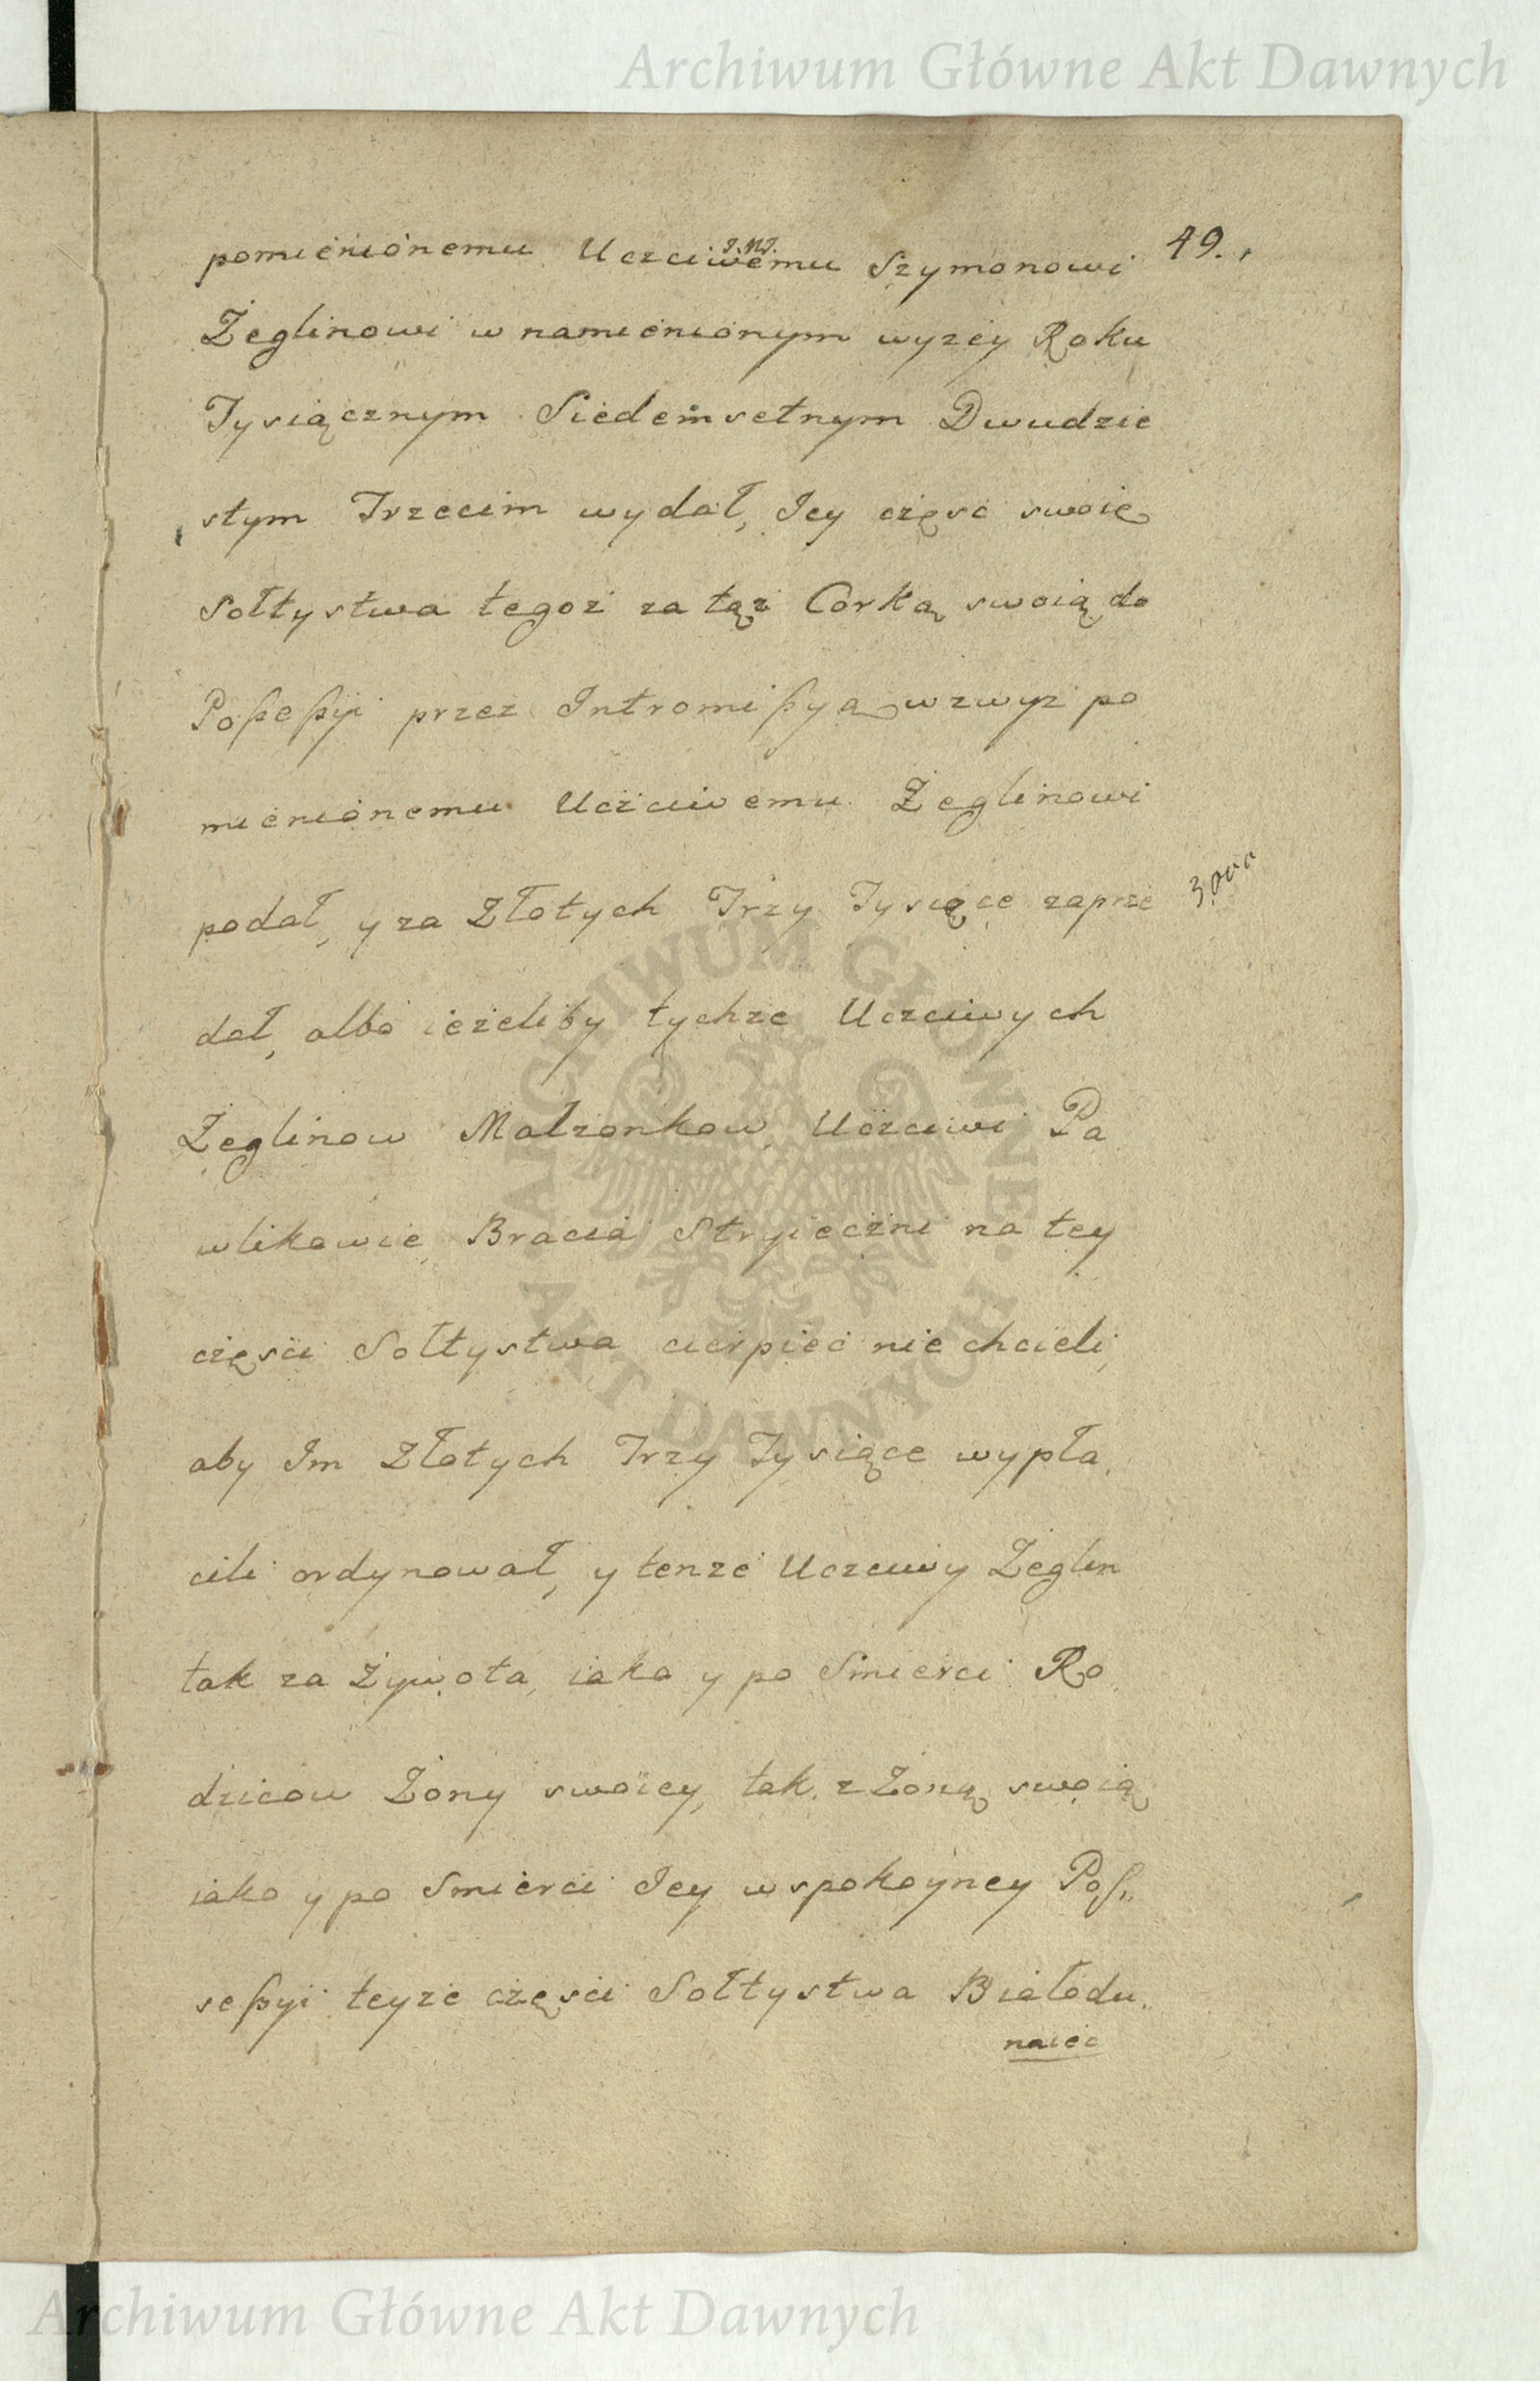 Archiwum Główne Akt Dawnych
49.
pomienionemu Uczciwemu Szymonowi
Żeglinowi w namienionym wyzey Roku
Tysiącznym Siedemsetnym Dwudzie
stym Trzecim wydał, Jey częsc swoię
Sołtystwa tegoż za tąż Corką swoią do
Poßeßyi przez Intromißyą wzwyz po
mienionemu Uczciwemu Żeglinowi
podał, y za Złotych Trzy Tysiące zaprze
3000
dał, albo ieżeliby tychże Uczciwych
Żeglinow Małzonkow, Uczciwi Pa
wlikowie, Bracia Stryieczni na tey
częsci Sołtystwa cierpieć nie chcieli,
aby Im Złotych Trzy Tysiące wypła,
cili ordynował, y tenże Uczciwy Żeglin
tak za Żywota, iako y po Smierci Ro,
dzicow Żony swoiey, tak z Żoną swoią
iako y po Smierci Jey w spokoyney Pos„
seßyi teyże częsci Sołtystwa Białodu„
naiec
ARCHIWUM GŁÓWNE AKT DAWNYCH
Archiwum Główne Akt Dawnych